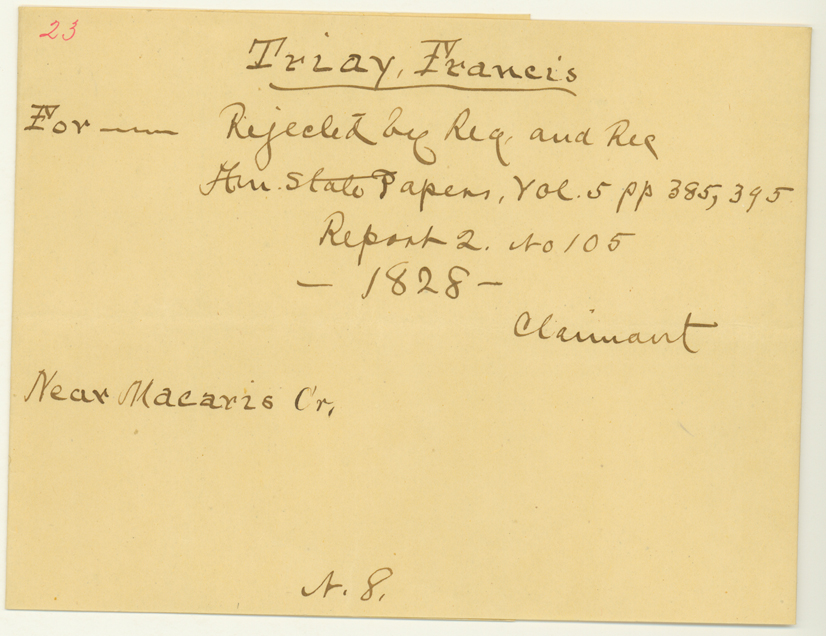 23
Triay, Francis
For —— Rejected by Reg. and Rec
Am. State Papers, Vol. 5 pp 385, 395
Report 2. No 105
— 1828 —
Claimant
Near Macaris Cr.
N. 8.